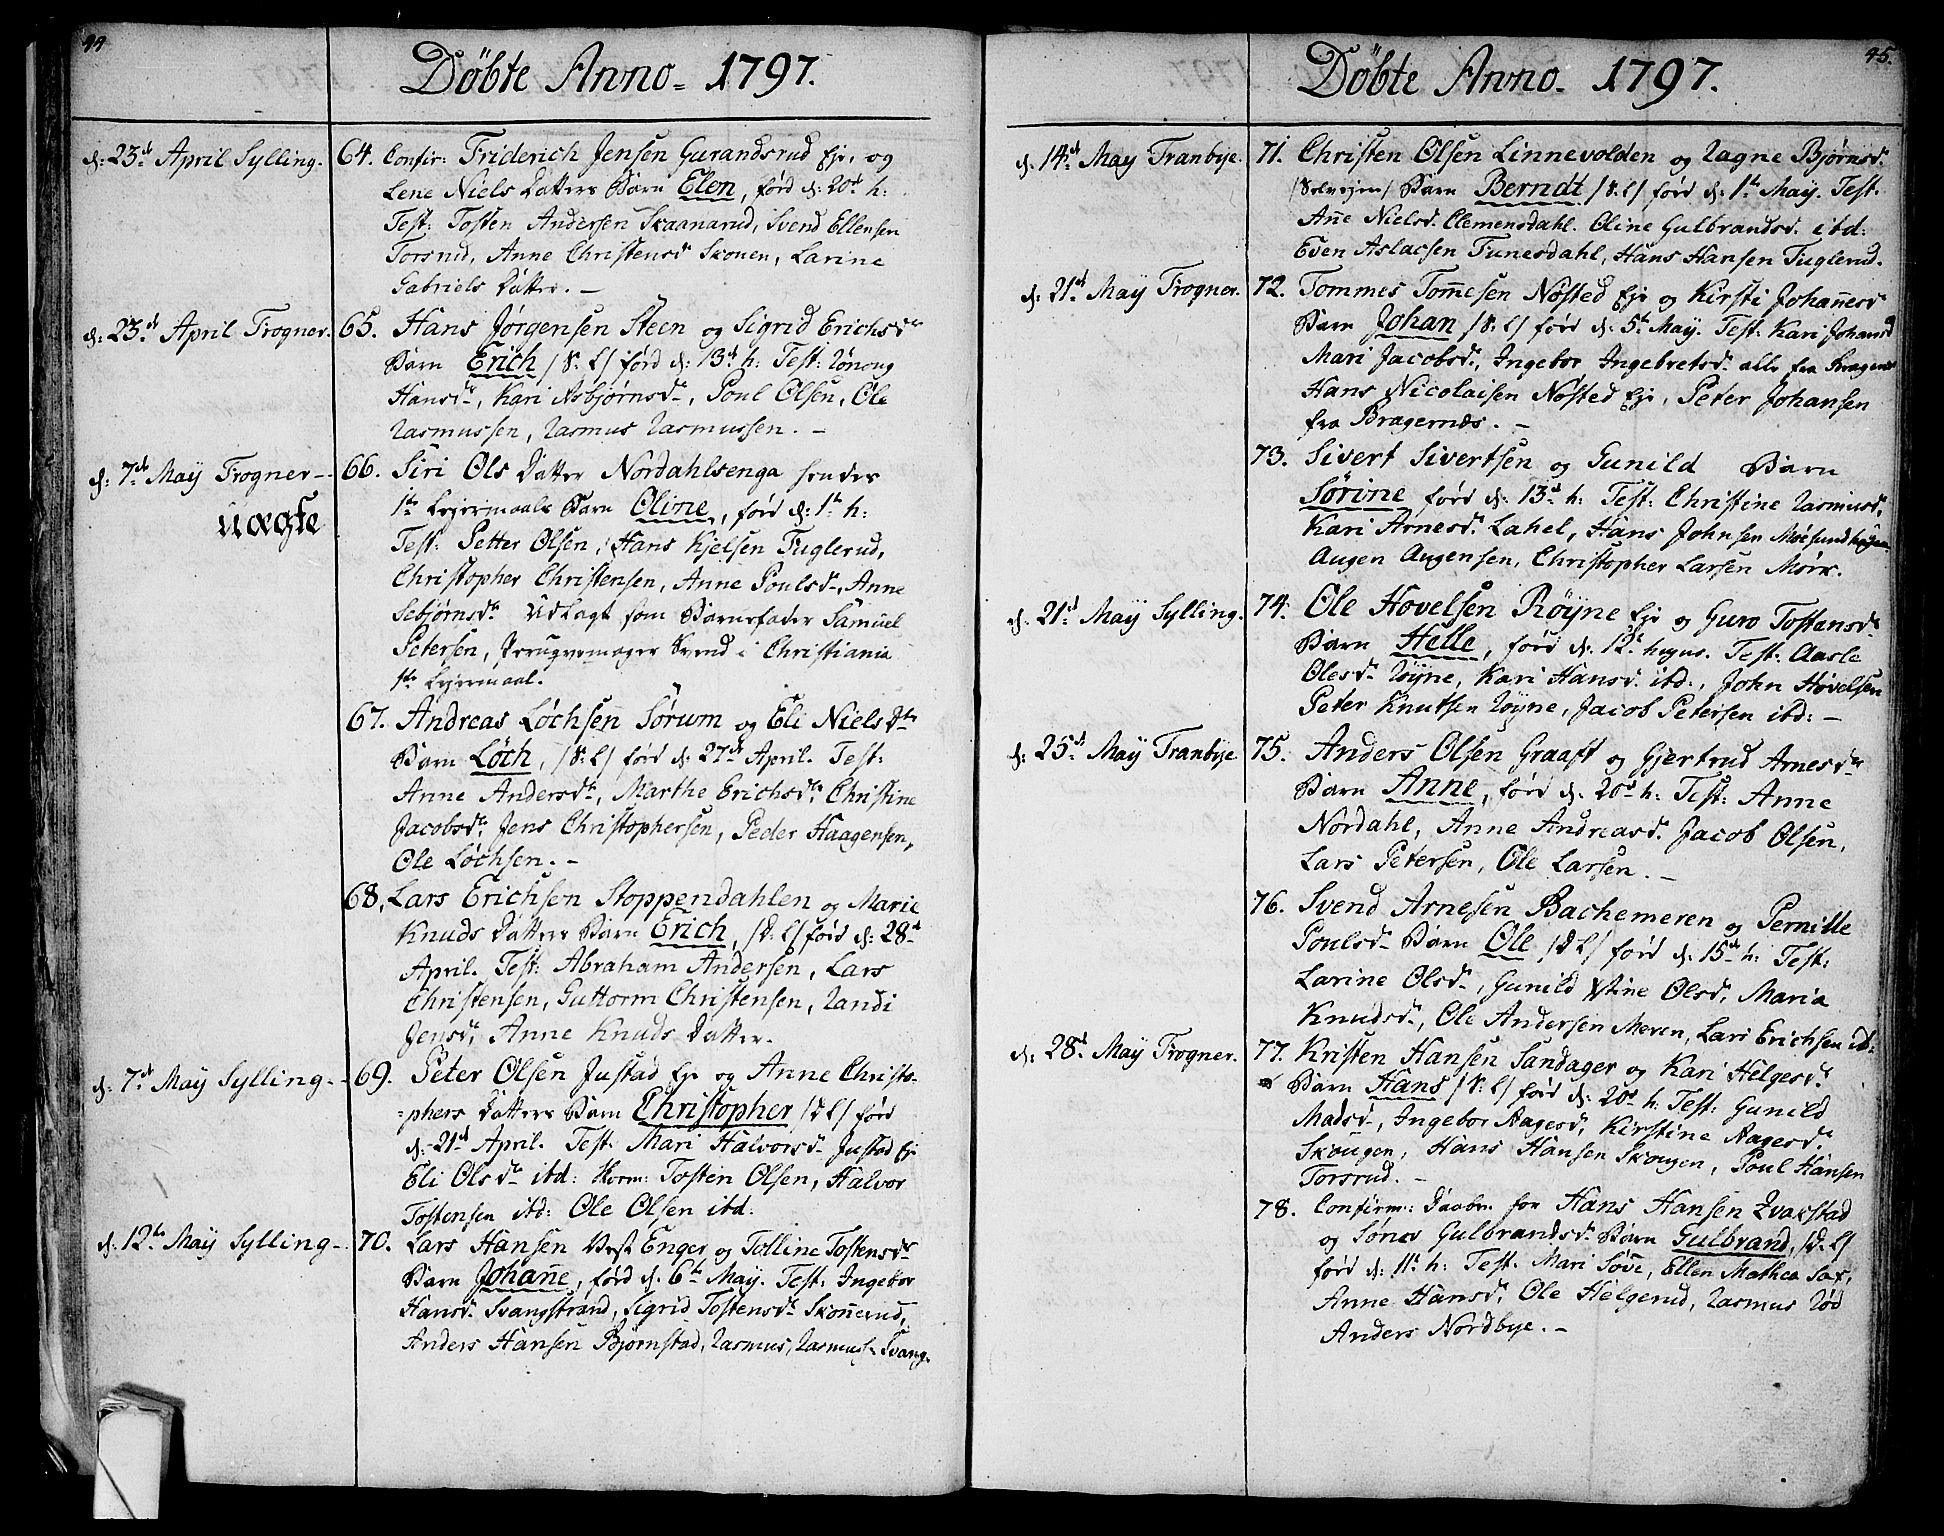 44
Döbte Anno= 1797.
d: 23d April Sylling.
64. Confir: Friderich Jensen Gurandsrud Eje, og
Lene Niels Datters Barn Elen, förd d: 20d h:
Test: Tosten Andersen Skaanarud, Svend Ellensen
Torsrud, Anne Christensdr Skonen, Larine
Gabriels Datter. –
d: 23d April Frogner.
65. Hans Jörgensen Steen og Sigrid Erichsdr
Barn Erich /S: L/ förd d: 13d h: Test: Rönnog
Hansdr, Kari Asbjörnsdr, Poul Olsen, Ole
Rasmussen, Rasmus Rasmussen. –
d: 7de Maÿ Frogner –
uægte
66. Siri Ols Datter Nordahlsenga hendes
1te Lejermaals Barn Oline, förd d: 1te h:
Test: Petter Olsen, Hans Kjelsen Fuglerud,
Christopher Christensen, Anne Poulsdr, Anne
Sebjörnsdr Udlagt som Barnefader Samuel
Petersen, Perugvemager Svend i Christiania
1te Lejermaal.
67. Andreas Löchsen Sörum og Eli Niels Dtr
Barn Löch, /S: L/ förd d: 27de April. Test:
Anne Andersdr, Marthe Erichsdr, Christine
Jacobsdr, Jens Christophersen, Peder Haagensen,
Ole Löchsen. –
68. Lars Erichsen Stoppendahlen og Marie
Knuds Datters Barn Erich, /D: L/ förd d: 28d
April. Test: Abraham Andersen, Lars
Christensen, Guttorm Christensen, Randi
Jensdr, Anne Knuds Datter.
d: 7de Maÿ Sylling. –
69. Peter Olsen Justad Eje og Anne Christo-
=phers Datters Barn Christopher /D L/ förd
d: 21d April. Test: Mari Halvorsdr Justad Ej
Eli Olsdr ibd: Norm: Tosten Olsen, Halvor
Tostensen ibd: Ole Olsen ibd:
d: 12te Maÿ Sylling –
70. Lars Hansen Vest Enger og Tolline Tostensdr
Barn Johañe, förd d. 6te Maÿ. Test: Ingebor
Hansdr Svangstrand, Sigrid Tostensdr Skoñerud,
Anders Hansen Björnstad, Rasmus Rasmuss: Svang.
45.
Döbte Anno. 1797.
d: 14d Maÿ Tranbye.
71. Christen Olsen Linnevolden og Ragne Björnsdr
/Solvejen/ Barn Berndt /S: L/ förd d: 1te Maÿ. Test.
Añe Nielsdr. Clemensdahl. Oline Gulbrandsdr. ibd:
Even Aslacsen Tunesdahl, Hans Hansen Fuglerud.
d: 21d Maÿ Frogner.
72. Tommes Tom̃esen Nösted Eje og Kirsti Johañesdr
Barn Johan /S: L/ förd d: 5te Maÿ. Test: Kari Johansdr
Mari Jacobsdr, Ingebor Ingebretsdr. alle fra Bragernes
Hans Nicolaisen Nösted Eje, Peter Johansen
fra Bragernæs. –
73. Sivert Sivertsen og Gunild Barn
Sörine förd d: 13d h: Test: Christine Rasmusdr.
Kari Arnesdr. Lahel, Hans Johnsen Möesundhagen
Augen Augensen, Christopher Larsen Mörk.
d: 21d Maÿ Sylling.
74. Ole Hovelsen Röyne Eje og Guro Tostensdr.
Barn Helle, förd d: 12te hujus. Test: Aasle
Olesdr Röyne, Kari Hansdr. ibd:, John Hövelsen
Peter Knutsen Röyne, Jacob Petersen ibd: –
d: 25d Maÿ Tranbye
75. Anders Olsen Graaft og Gjertrud Arnesdr
Barn Anne, förd d: 20d h: Test: Anne
Nordahl, Anne Andreasdr. Jacob Olsen,
Lars Petersen, Ole Larsen. –
76. Svend Arnesen Bachemeren og Pernille
Poulsdr Barn Ole /D L/ förd d: 15de h: Test:
Larine Olsdr, Gunild Xtine Olsdr, Maria
Knudsdr, Ole Andersen Meren, Lars Erichsen ib:
d: 28d Maÿ Frogner.
77. Kristen Hansen Sandager og Kari Helgesdr
Barn Hans /S: L/ förd d: 20d h: Test: Gunild
Madsdr, Ingebor Aagesdr, Kirstine Aagesdr
Skougen, Hans Hansen Skougen, Poul Hansen
Torsrud. –
78. Confirm: Daaben for Hans Hansen Kvakstad
og Sönes Gulbrandsdr Barn Gulbrand, /D: L/
förd d: 11te h: Test. Mari Söve, Ellen Mathea Sax,
Anne Hansdr, Ole Helgerud, Rasmus Röd
Anders Nordbye. –